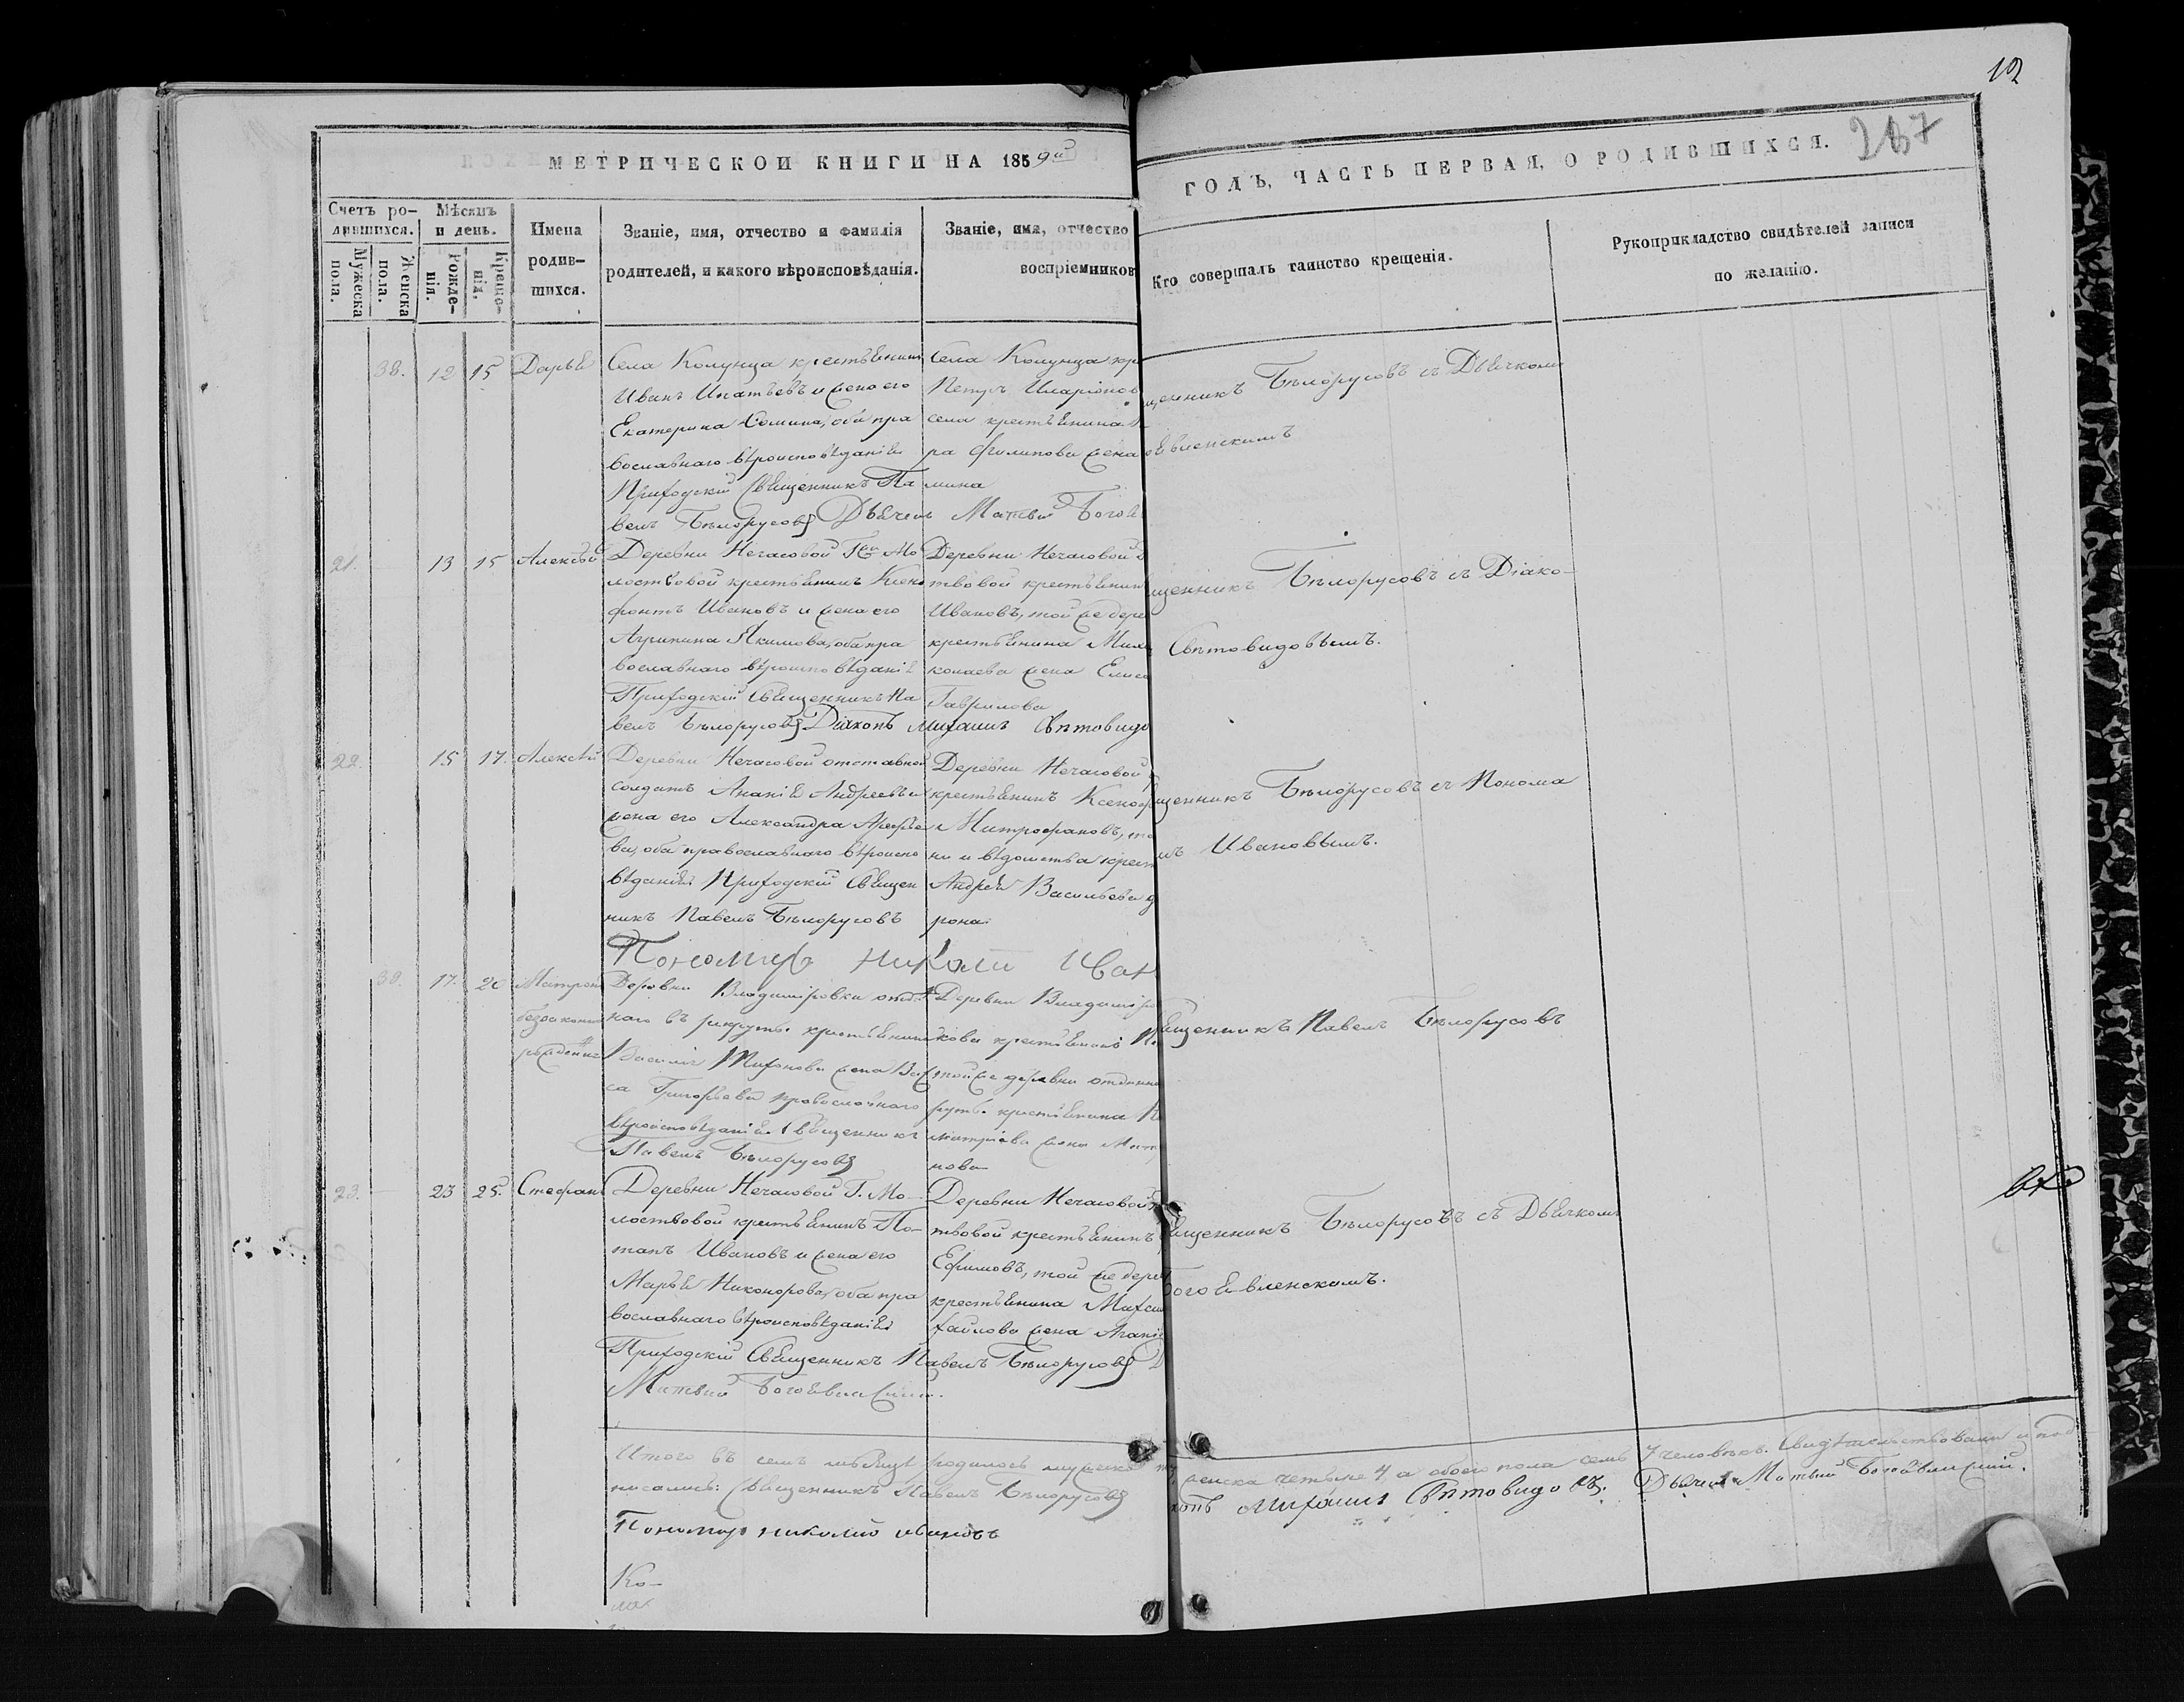 12
287
МЕТРИЧЕСКОЙ КНИГИ НА 1859й
ГОДЪ, ЧАСТЬ ПЕРВАЯ, О РОДИВШИХСЯ.
Счетъ родившихся.
Мужеска пола.
Женска пола.
Мѣсяцъ и день.
Рожденія.
Крещенія.
Имена родившихся.
Званіе, имя, отчество и фамилія
родителей, и какого вѣроисповѣданія.
Званіе, имя, отчество
воспріемников
Кто совершалъ таинство крещенія.
Рукоприкладство свидѣтелей записи
по желанію.
38. 12 15 Дарья
Села Колунца крестьянинъ
Иванъ Игнатьевъ и жена его
Екатерина Сомина, оба пра
вославнаго вѣроисповѣданія
Приходскій Священникъ Па
велъ Бѣлорусовъ Дьячекъ Матвѣй Богоя
Села Колунца кр
Петръ Иларіонов
села крестьянина
ра Филипова жена
мина
щенникъ Бѣлорусовъ съ Дьячкомъ
оявленскимъ
21. 13 15 Алексѣй
Деревни Нечасовой Гна Мо
лоствовой крестьянинъ Ксено
фонтъ Ивановъ и жена его
Агрипина Якимова, оба пра
вославнаго вѣроисповѣданія
Приходскій Священникъ Па
велъ Бѣлорусовъ Діаконъ Михаилъ Свѣтовидо
Деревни Нечасовой
твовой крестьянин
Ивановъ, той же дерев
крестьянина Миха
колаева жена Елиса
Гаврилова
щенникъ Бѣлорусовъ съ Діако-
Свѣтовидовымъ.
22. 15 17. Алексѣй
Деревни Нечасовой отставной
солдатъ Ананія Андреевъ и
жена его Александра Арефье
ва, оба православнаго вѣроиспо
вѣданія Приходскій Священ
никъ Павелъ Бѣлорусовъ
Пономарь Николай Иван
Деревни Нечасовой
крестьянинъ Ксеноф
Митрофановъ, то
ни и вѣдомства крест
Андрея Васильева д
рона.
щенникъ Бѣлорусовъ съ Понома
мъ Ивановымъ.
39. 17. 20 Матрона
беззаконно
рожденная
Деревни Владиміровки отдан
наго въ рекруты крестьянина
Василія Тихонова жена Вас
са Григорьева православнаго
вѣроисповѣданія. Священникъ
Павелъ Бѣлорусовъ
Деревни Владиміро
кова крестьянинъ
той же деревни отданна
руты крестьянина
митріева жена Мат
нова
вященникъ Павелъ Бѣлорусовъ
23. 23 25. Стефанъ
Деревни Нечасовой Г. Мо-
лоствовой крестьянинъ По-
тапъ Ивановъ и жена его
Марья Никонорова, оба пра
вославнаго вѣроисповѣданія
Приходскій Священникъ Павелъ Бѣлорусовъ Д
Матвѣй Богоявленскій.
Деревни Нечасовой
твовой крестьянинъ
Ефимовъ, той же дерев
крестьянина Михаи
хайлова жена Агани
вященникъ Бѣлорусовъ съ Дьячкомъ
Богоявленскимъ.
Итого въ семъ мѣсяцѣ родилось мужеска женска четыре 4 а обоего пола семь 7 человѣкъ. Свидѣтельствовали и под
писались: Священникъ Павелъ Бѣлорусовъ конъ Михаилъ Свѣтовидовъ. Дьячекъ Матвѣй Богоявленскій.
Пономарь Николай Ивановъ
Ко-